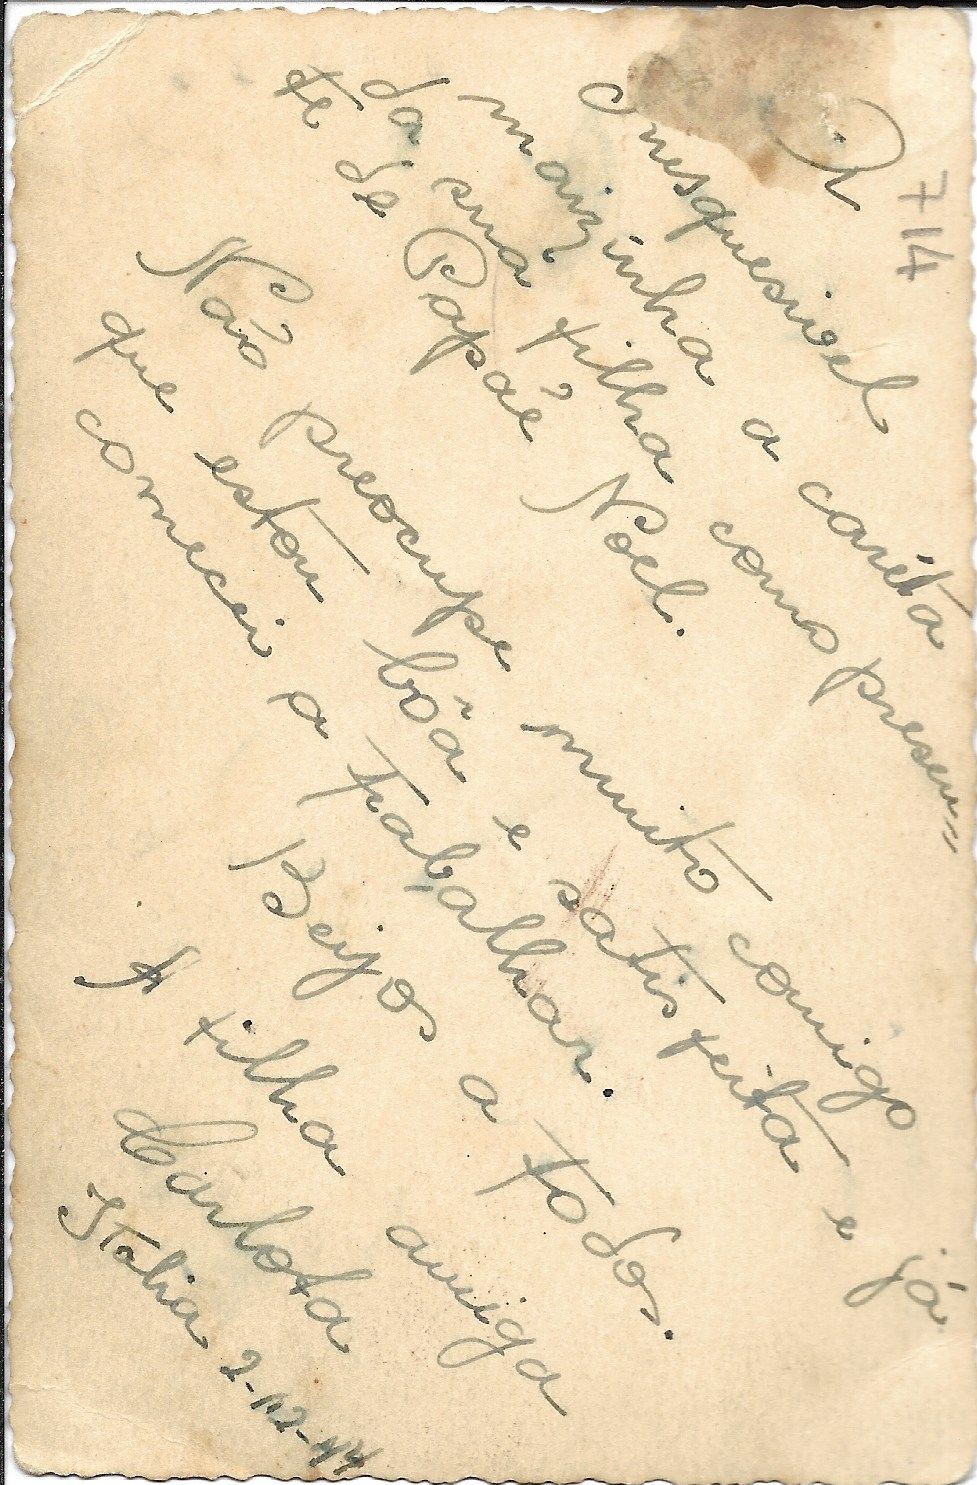 À
inesquesivel
maizinha a caréta
da sua filha como presen=
te de Papáe Noel.
Não preocupe muito comigo
que estou bôa e satisfeita e já
comecei a trabalhar.
Beijos a todos.
A filha amiga
Carlota
Italia 2-12-44
714